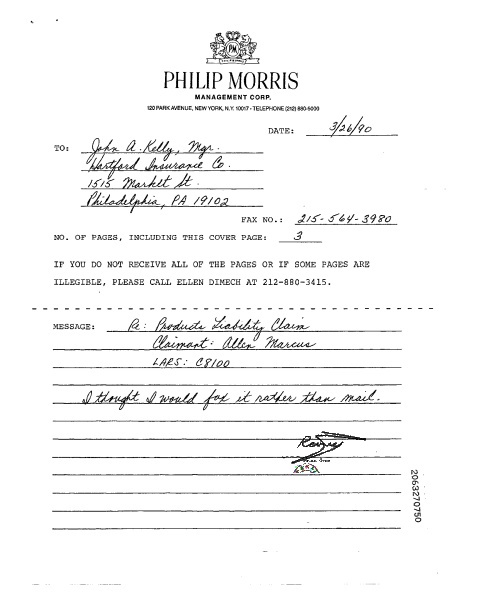 PM
PHILIP MORRIS
MANAGEMENT CORP.
120 PARK AVENUE, NEW YORK, N.Y. 10017 • TELEPHONE (212) 880-5000
DATE: 3/26/90
TO: John A. Kelly, Mgr.
Hartford Insurance Co.
1515 Market St.
Philadelphia, PA 19102
FAX NO.: 215-564-3980
NO. OF PAGES, INCLUDING THIS COVER PAGE: 3
IF YOU DO NOT RECEIVE ALL OF THE PAGES OR IF SOME PAGES ARE
ILLEGIBLE, PLEASE CALL ELLEN DIMECH AT 212-880-3415.
MESSAGE: Re: Products Liability Claim
Claimant: Allen Marcus
LARS: C8100
I thought I would fax it rather than mail.
2063270750